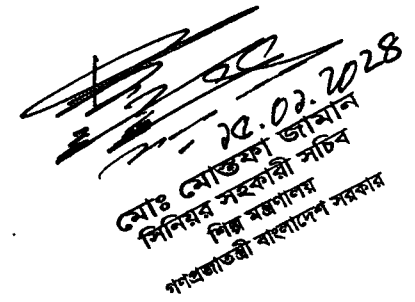 ২৫.০১.২০২৪
মোঃ মোস্তফা জামান
সিনিয়র সহকারী সচিব
শিল্প মন্ত্রণালয়
গণপ্রজাতন্ত্রী বাংলাদেশ সরকার